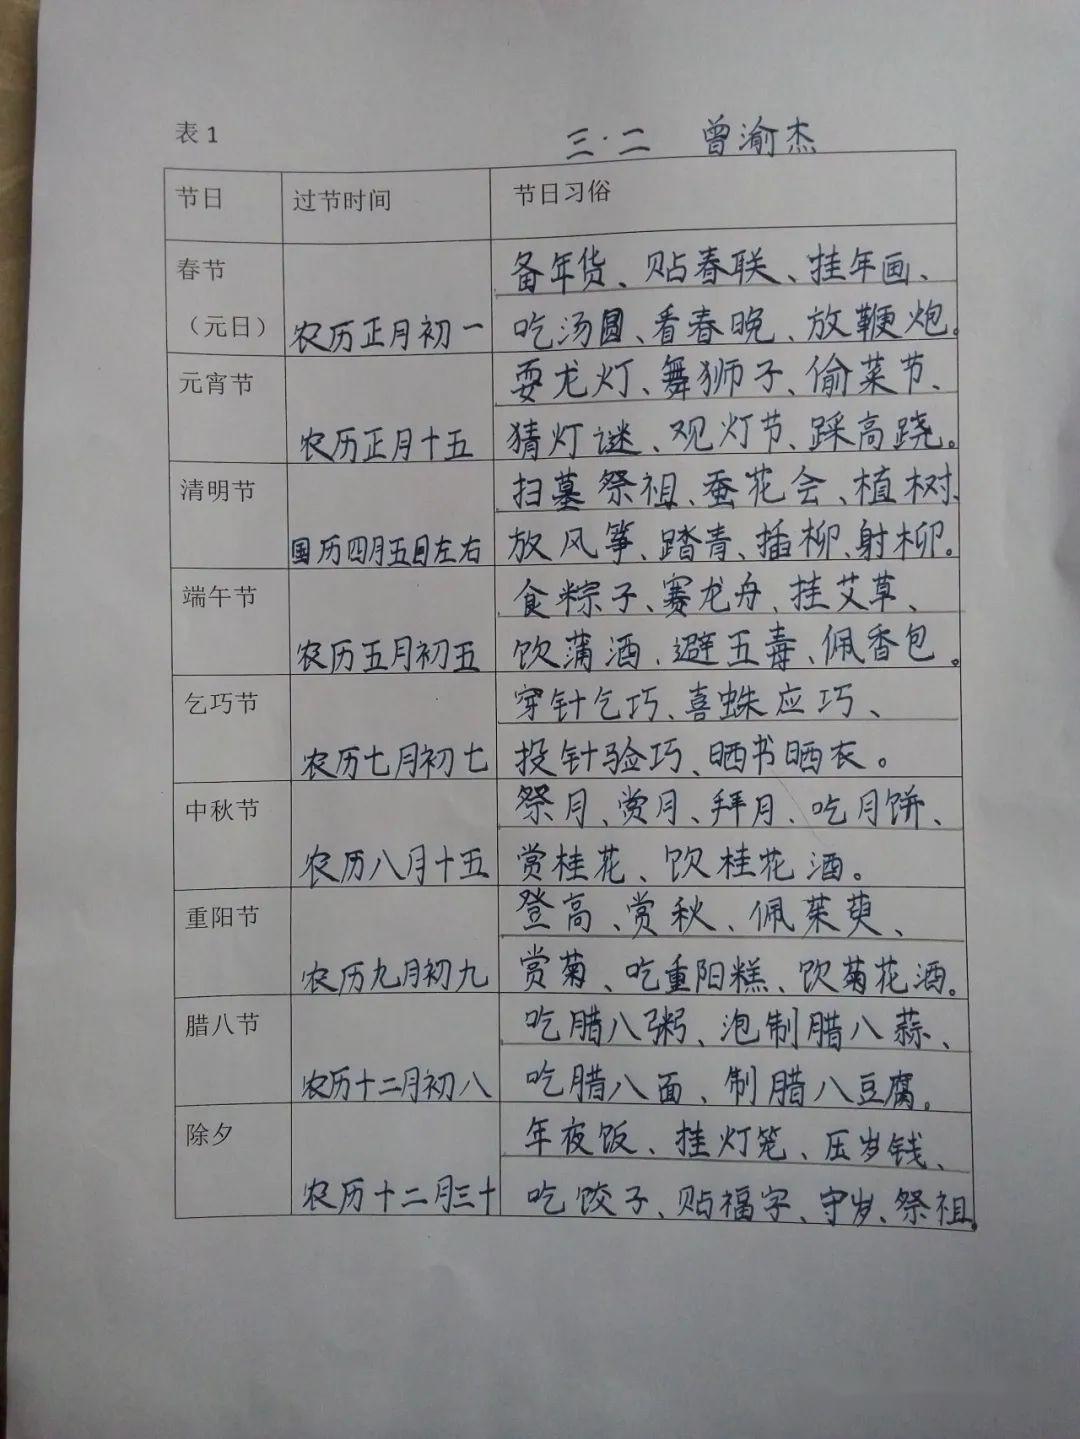 表1 三·二 曾渝杰
节日 过节时间 节日习俗
春节 备年货、贴春联、挂年画、
（元日） 农历正月初一 吃汤圆、看春晚、放鞭炮。
元宵节 耍龙灯、舞狮子、偷菜节、
农历正月十五 猜灯谜、观灯节、踩高跷。
清明节 扫墓祭祖、蚕花会、植树、
国历四月五日左右 放风筝、踏青、插柳、射柳。
端午节 食粽子、赛龙舟、挂艾草、
农历五月初五 饮蒲酒、避五毒、佩香包。
乞巧节 穿针乞巧、喜蛛应巧、
农历七月初七 投针验巧、晒书晒衣。
中秋节 祭月、赏月、拜月、吃月饼、
农历八月十五 赏桂花、饮桂花酒。
重阳节 登高、赏秋、佩茱萸、
农历九月初九 赏菊、吃重阳糕、饮菊花酒。
腊八节 吃腊八粥、泡制腊八蒜、
农历十二月初八 吃腊八面、制腊八豆腐。
除夕 年夜饭、挂灯笼、压岁钱、
农历十二月三十 吃饺子、贴福字、守岁、祭祖。